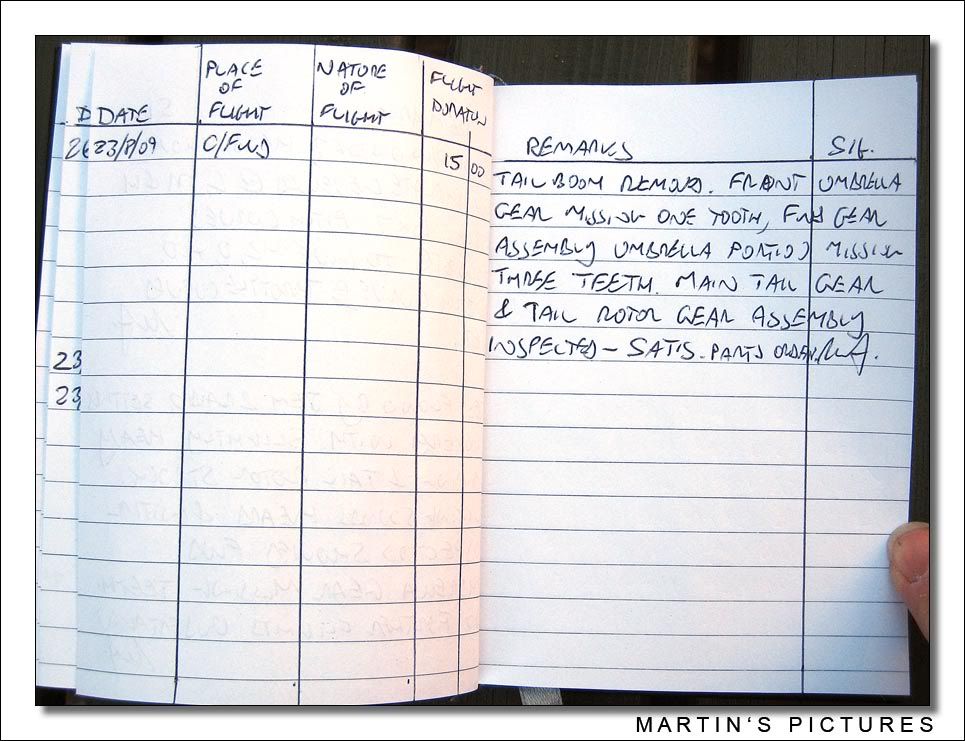 DATE
PLACE OF FLIGHT
NATURE OF FLIGHT
FLIGHT DURATION
REMARKS
SIG.
23/8/09 C/FWD 15 00
TAIL BOOM REMOVED. FRONT UMBRELLA
GEAR MISSING ONE TOOTH, FWD GEAR
ASSEMBLY UMBRELLA PORTION MISSING
THREE TEETH. MAIN TAIL GEAR
& TAIL ROTOR GEAR ASSEMBLY
INSPECTED - SATIS. PARTS ORDER.
23
23
MARTIN'S PICTURES